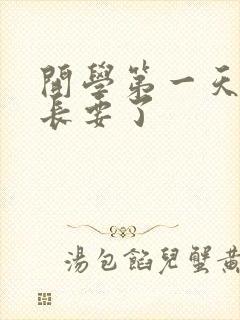 開學第一天
長要了
湯包餡兒蟹黃